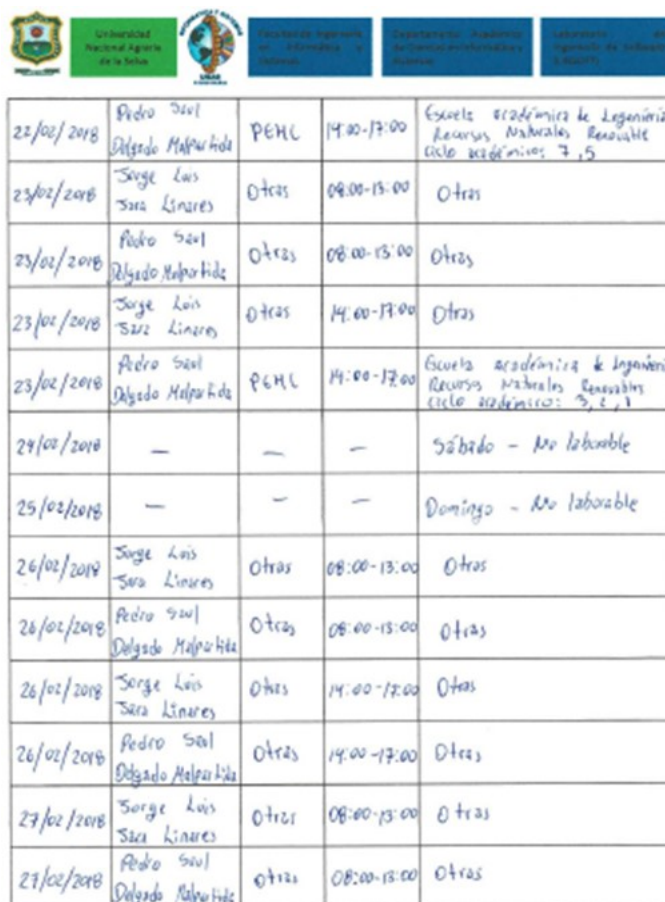 Universidad
Nacional Agraria
de la Selva
22/02/2018 Pedro Saul Delgado Malpartida PEHC 14:00-17:00 Escuela académica de Ingeniería
Recursos Naturales Renovable
ciclo académicos 7,5
23/02/2018 Jorge Luis Jara Linares Otras 08:00-13:00 Otras
23/02/2018 Pedro Saul Delgado Malpartida Otras 08:00-13:00 Otras
23/02/2018 Jorge Luis Jara Linares Otras 14:00-17:00 Otras
23/02/2018 Pedro Saul Delgado Malpartida PEHC 14:00-17:00 Escuela académica de Ingeniería
Recursos Naturales Renovables
ciclo académico: 3, 2, 1
24/02/2018 — — — Sábado - No laborable
25/02/2018 — — — Domingo - No laborable
26/02/2018 Jorge Luis Jara Linares Otras 08:00-13:00 Otras
26/02/2018 Pedro Saul Delgado Malpartida Otras 08:00-13:00 Otras
26/02/2018 Jorge Luis Jara Linares Otras 14:00-17:00 Otras
26/02/2018 Pedro Saul Delgado Malpartida Otras 14:00-17:00 Otras
27/02/2018 Jorge Luis Jara Linares Otras 08:00-13:00 Otras
27/02/2018 Pedro Saul Delgado Malpartida Otras 08:00-13:00 Otras